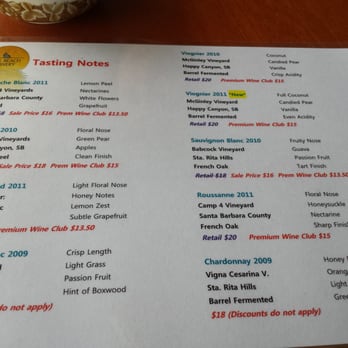 BEACH
Tasting Notes
che Blanc 2011 Lemon Peel
Vineyards Nectarines
arbara County White Flowers
Grapefruit
Sale Price $18 Prem Wine Club $13.50
2010 Floral Nose
Vineyards Green Pear
nyon, SB Apples
eel Clean Finish
Sale Price $18 Prem Wine Club $15
d 2011 Light Floral Nose
r: Honey Notes
c Lemon Zest
Subtle Grapefruit
remium Wine Club $13.50
c 2009 Crisp Length
Light Grass
Passion Fruit
Hint of Boxwood
do not apply)
Viognier 2010 Coconut
McGinley Vineyard Candied Pear
Happy Canyon, SB Vanilla
Barrel Fermented Crisp Acidity
Retail $20 Premium Wine Club $15
Viognier 2011 *New* Full Coconut
McGinley Vineyard Candied Pear
Happy Canyon, SB Vanilla
Barrel Fermented Even Acidity
Retail $20 Premium Wine Club $15
Sauvignon Blanc 2010 Fruity Nose
Babcock Vineyard Guava
Sta. Rita Hills Passion Fruit
French Oak Tart Finish
Retail $18 Sale Price $16 Premium Wine Club $13.50
Roussanne 2011 Floral Nose
Camp 4 Vineyard Honeysuckle
Santa Barbara County Nectarine
French Oak Sharp Finis
Retail $20 Premium Wine Club $15
Chardonnay 2009 Honey
Vigna Cesarina V. Orang
Sta. Rita Hills Light
Barrel Fermented Green
$18 (Discounts do not apply)